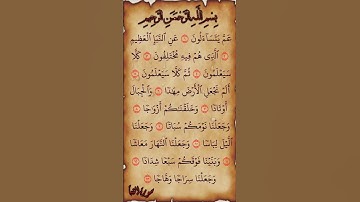 بِسْمِ اللَّهِ الرَّحْمَٰنِ الرَّحِيمِ
عَمَّ يَتَسَاءَلُونَ ۝ عَنِ النَّبَإِ الْعَظِيمِ
۝ الَّذِي هُمْ فِيهِ مُخْتَلِفُونَ ۝ كَلَّا
سَيَعْلَمُونَ ۝ ثُمَّ كَلَّا سَيَعْلَمُونَ ۝
أَلَمْ نَجْعَلِ الْأَرْضَ مِهَٰدًا ۝ وَالْجِبَالَ
أَوْتَادًا ۝ وَخَلَقْنَٰكُمْ أَزْوَٰجًا ۝
وَجَعَلْنَا نَوْمَكُمْ سُبَاتًا ۝ وَجَعَلْنَا
الَّيْلَ لِبَاسًا ۝ وَجَعَلْنَا النَّهَارَ مَعَاشًا
۝ وَبَنَيْنَا فَوْقَكُمْ سَبْعًا شِدَادًا ۝
وَجَعَلْنَا سِرَاجًا وَهَّاجًا ۝